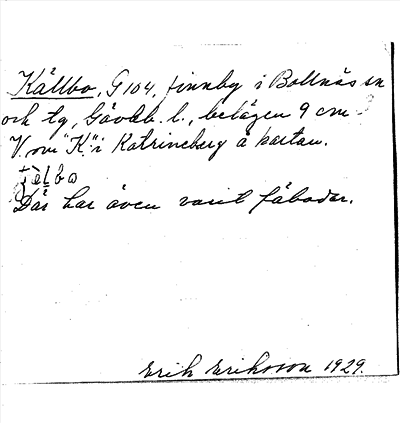 Källbo, G 104, finnby i Bollnäs sn
och tg, Gävleb. l., belägen 9 cm
V om "K" i Katrineberg å kartan.
Där har även varit fäbodar.
Erik Eriksson 1929.